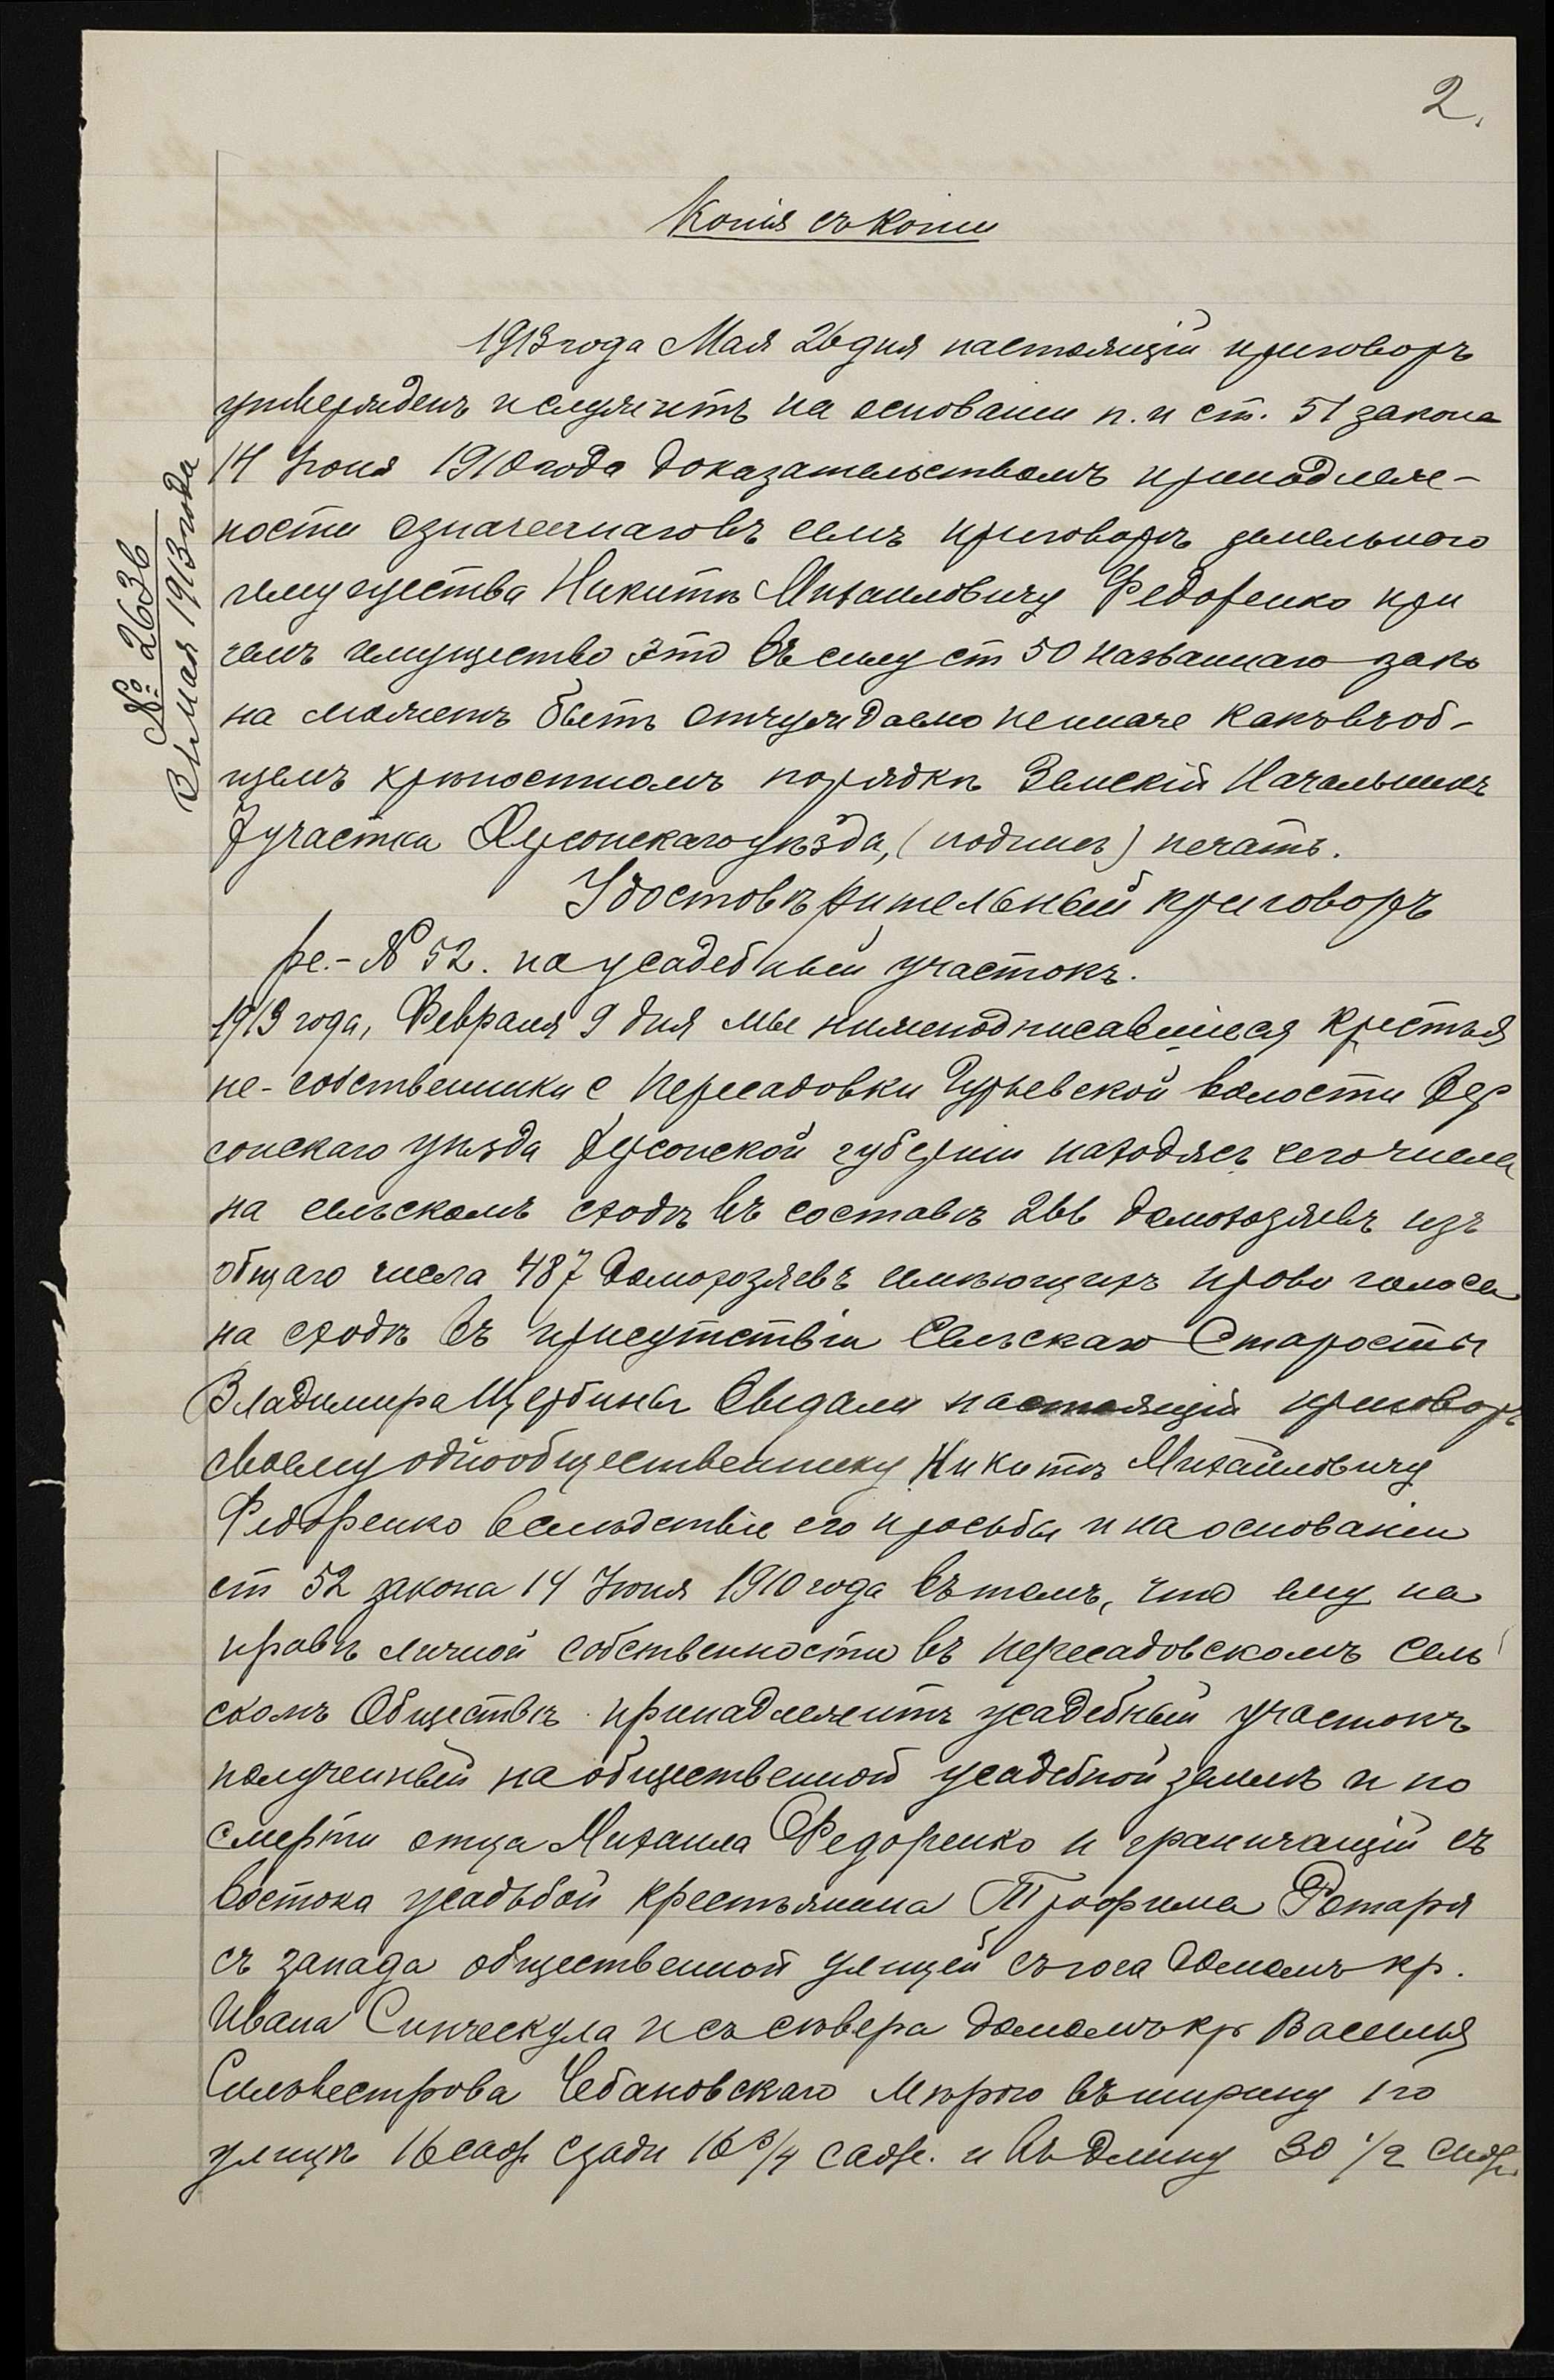 2.
Копія съ Копіи
№ 2636
31 мая 1913 года
1913 года Мая 26 дня настоящій приговоръ
утвержденъ и служитъ на основаніи п. и ст. 51 закона
14 Іюня 1910 года доказательствомъ принадлеж-
ности означеннаго въ семъ приговорѣ земельного
имущества Никитѣ Михаиловичу Федоренко при
чемъ имущество это въ силу ст 50 названнаго зако
на можетъ быть отчуждаемо неиначе какъ въ об-
щемъ крѣпостномъ порядкѣ Земскій Начальникъ
7 участка Херсонскаго уѣзда, (подпись) печать.
Удостовѣрительный приговоръ
№ 52. на усадебный участокъ.
1913 года, Февраля 9 дня мы нижеподписавшіеся крестья
не-собственники с Пересадовки Гурьевской волости Хер
сонскаго уѣзда Херсонской губерніи находясь сего числа
на сельскомъ сходѣ въ составѣ 266 домохозяевъ изъ
общаго числа 487 домохозяевъ имѣющихъ право голоса
на сходѣ въ присутствіи Сельскаго Старосты
Владимира Щербины выдали настоящій приговоръ
своему однообщественнику Никитѣ Михаиловичу
Федоренко вслѣдствіе его просьбы и на основаніи
ст 52 закона 14 Іюня 1910 года въ томъ, что ему на
правѣ личной собственности въ Пересадовскомъ Сель
скомъ Обществѣ принадлежитъ усадебный участокъ
полученный на общественной усадебной землѣ и по
смерти отца Михаила Федоренко и граничащій съ
востока усадьбой крестьянина Трофима Ротаря
съ запада общественной улицей съ юга домомъ кр.
Ивана и съ сѣвера домомъ кр Василія
Сильвестрова Чебановскаго мѣрою въ ширину по
улицѣ 16 саж сзади 16 3/4 саж. и въ длину 30 1/2 саж.